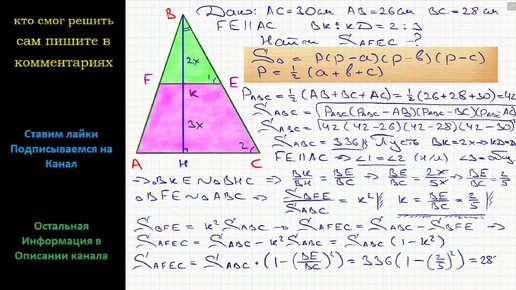 кто смог решить
сам пишите в
комментариях
Ставим лайки
Подписываемся на
Канал
Остальная
Информация в
Описании канала
B
2x
F
E
1
K
3x
A
H
2
C
Дано: AC=30см AB=26см BC=28см
FE||AC BK:KD=2:3
Найти S_AFEC - ?
S_Δ = √p(p-a)(p-b)(p-c)
P = 1/2 (a+b+c)
P_ABC = 1/2 (AB+BC+AC) = 1/2 (26+28+30) = 42
S_ABC = √P_ABC(P_ABC-AB)(P_ABC-BC)(P_ABC-AC)
S_ABC = √42(42-26)(42-28)(42-30)
S_ABC = 336 Пусть BK=2x→KD=
FE||AC → ∠1=∠2 ∠B=общ
→ΔBKE~ΔBHC → BK/BH = BE/BC → BE/BC = 2x/5x → BE/BC = 2/5
ΔBFE~ΔABC → S_BFE/S_ABC = k² | k = BE/BC = 2/5 |
S_BFE = k² S_ABC → S_AFEC = S_ABC - S_BFE →
S_AFEC = S_ABC - k² S_ABC = S_ABC (1-k²)
S_AFEC = S_ABC · (1-(BE/BC)²) = 336(1-(2/5)²) = 28